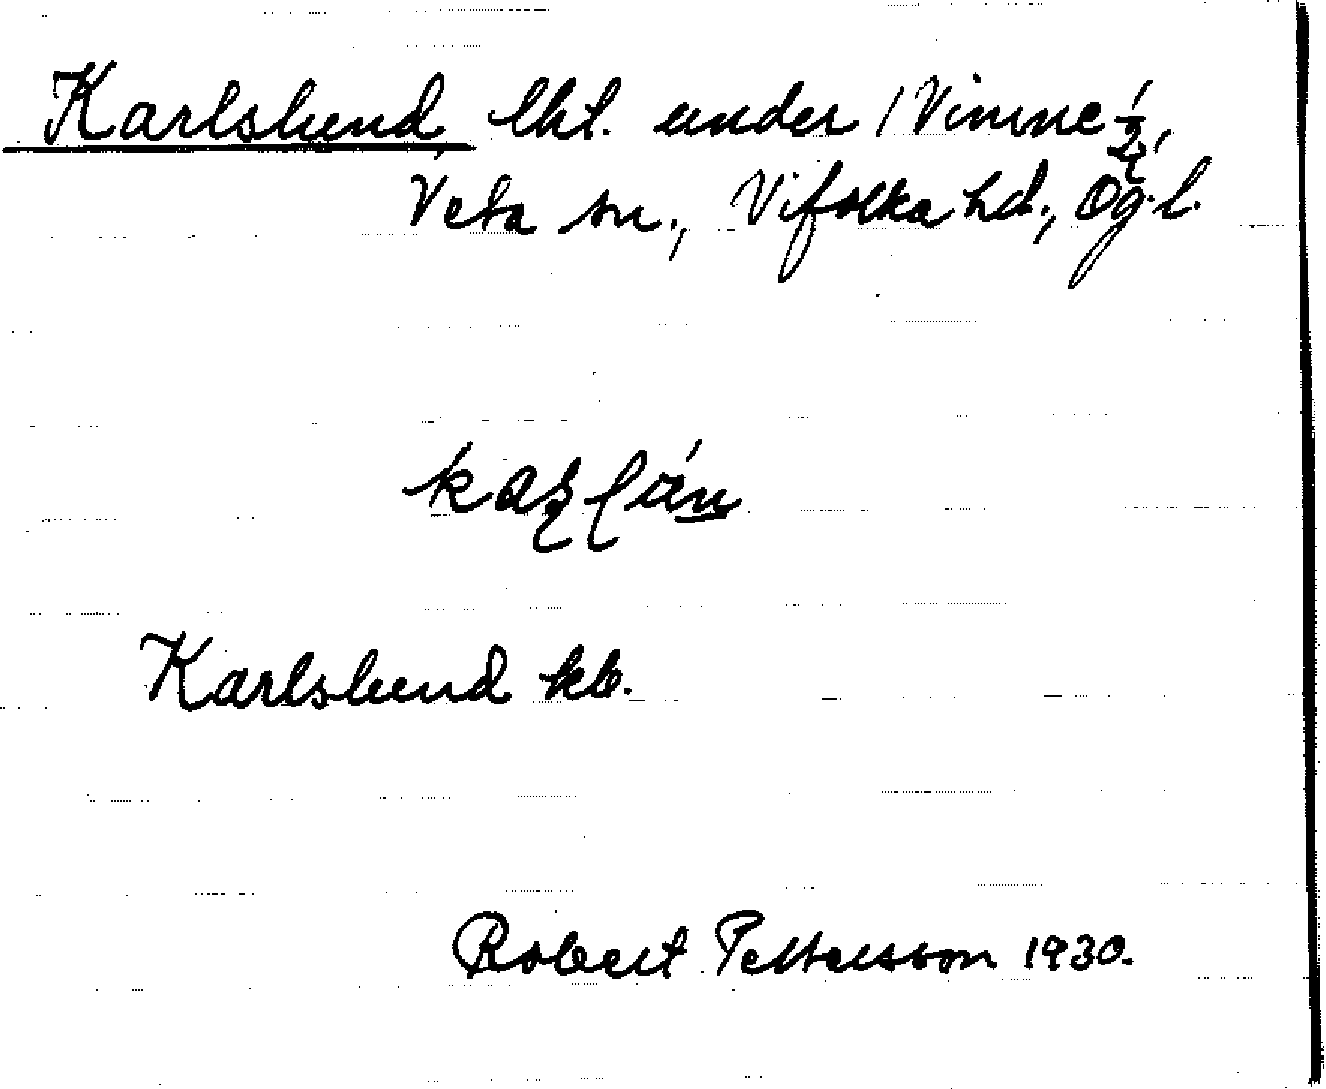 Karlslund, lht. under 1 Vimne ½,
Veta sn., Vifolka hd., Ög.l.
Karlslund kb.
Robert Pettersson 1930.